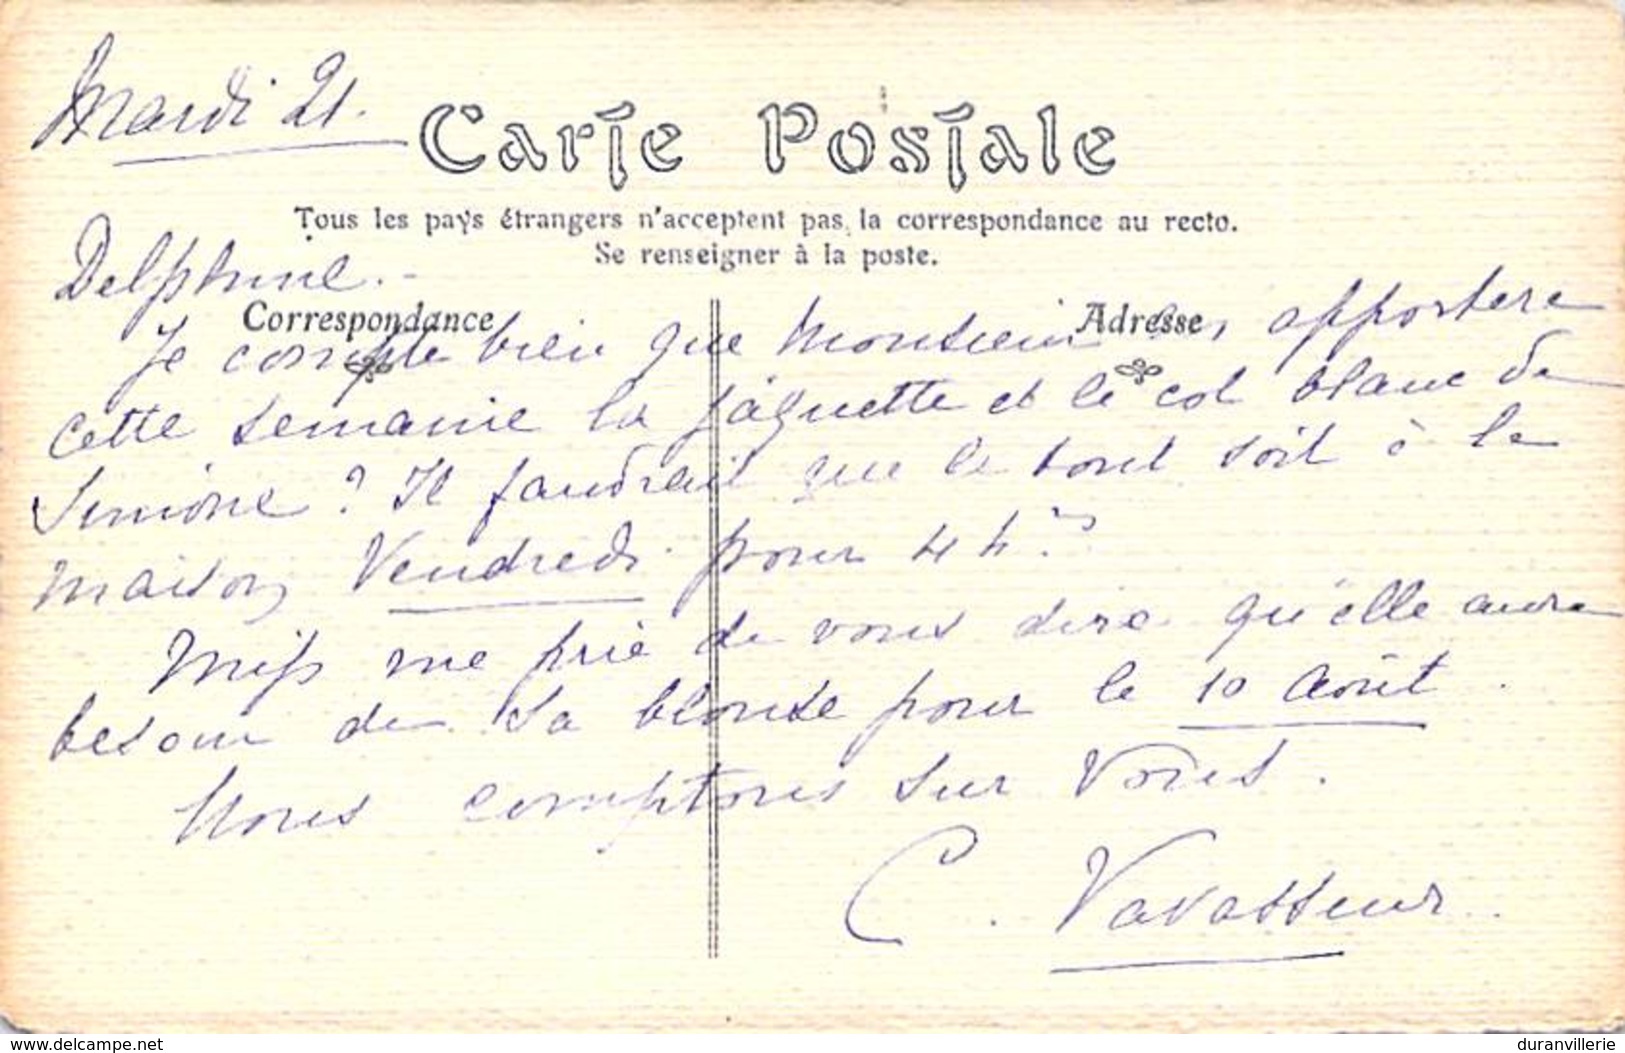 Mardi 21.
Carte Postale
Tous les pays étrangers n'acceptent pas la correspondance au recto.
Se renseigner à la poste.
Delphine.-
Correspondance
Adresse
Je compte bien que Monsieur apportera
cette semaine la jaquette et le col blanc de
Simone ? Il faudrait que le tout soit à la
maison Vendredi pour 4 h.res
Miss me prie de vous dire qu'elle aura
besoin de sa blouse pour le 10 Août.
Nous comptons sur Vous.
C. Vavasseur.
www.delcampe.net
duranvillerie